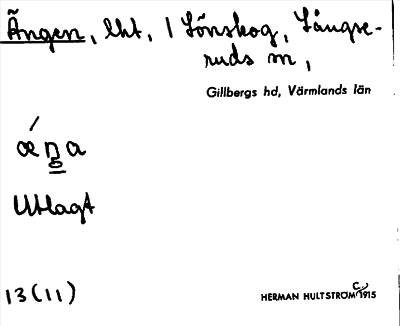 Ängen, lht, 1 Lönskog, Långse-
ruds sn,
Gillbergs hd, Värmlands län
Utlagt
13(11)
HERMAN HULTSTRÖM C. 1915